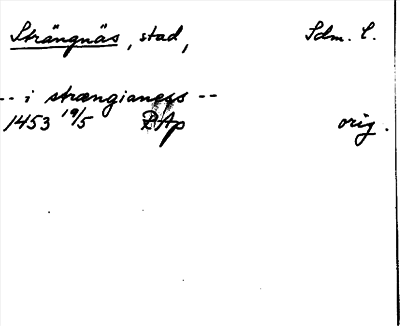 Strängnäs, stad, Sdm. l.
-- i strængianess --
1453 19/5 RAp orig.